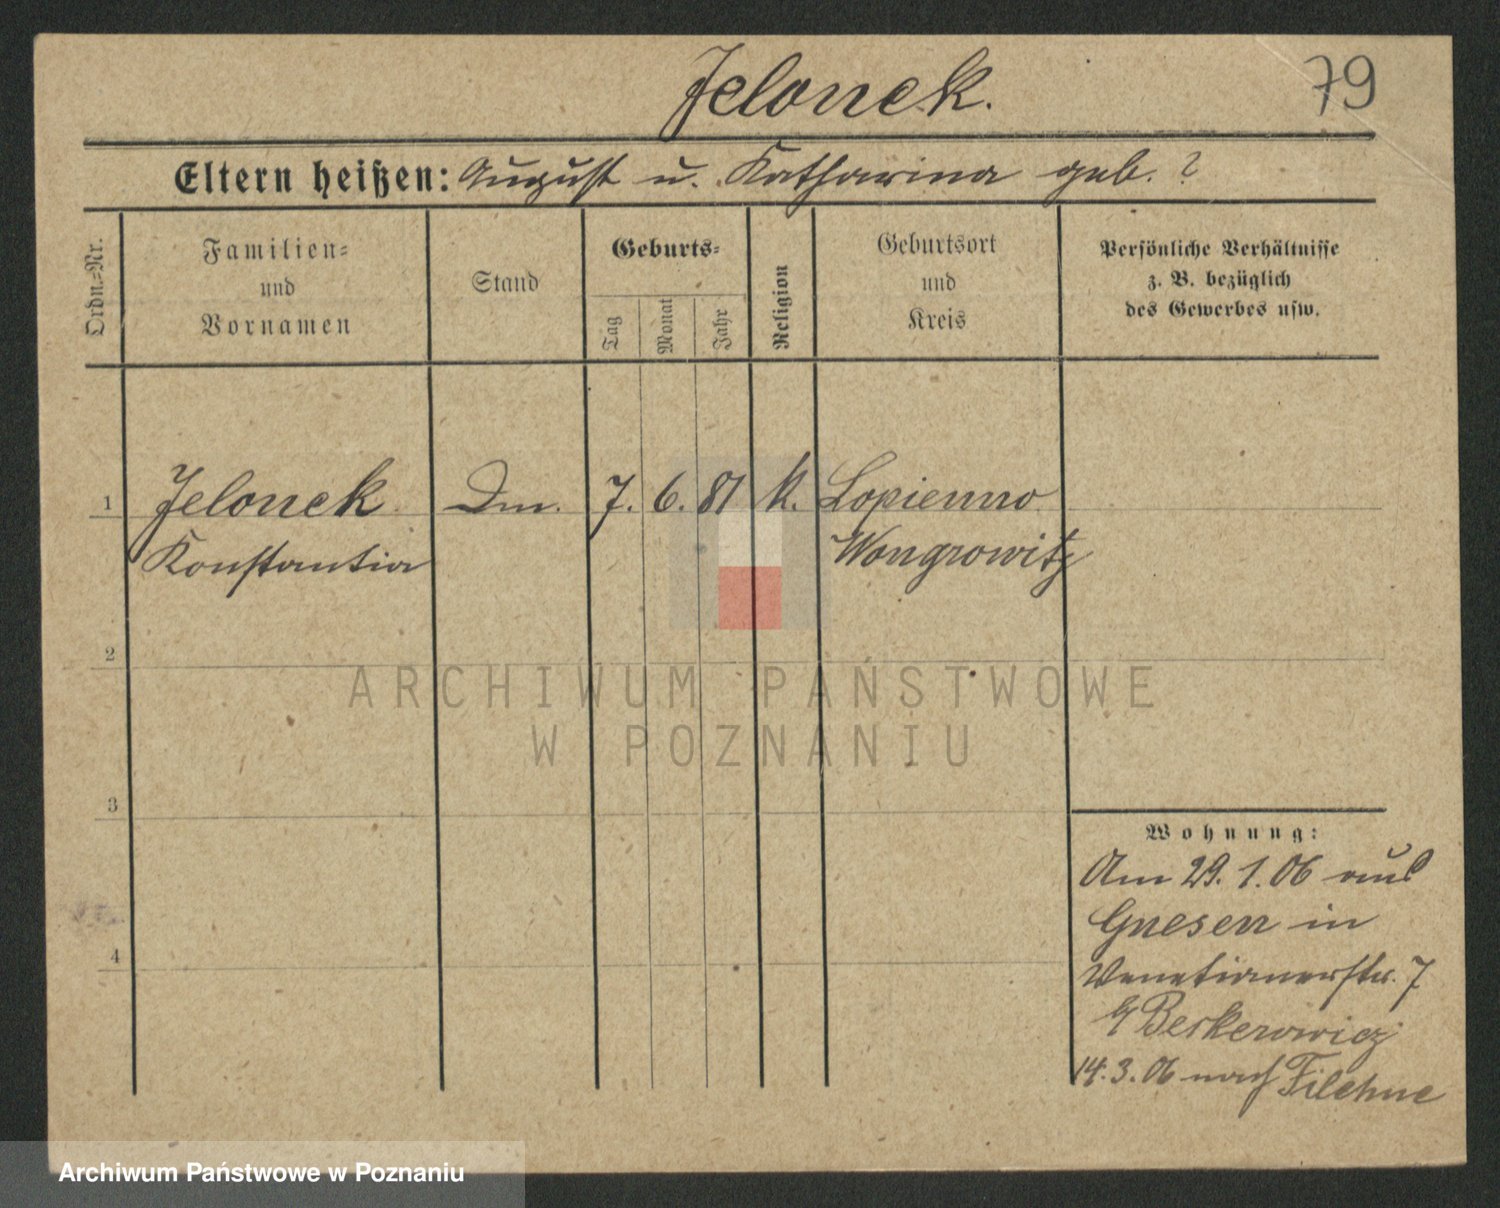 Jelonek.
79
Eltern heißen: August u. Katharina geb. ?
Ordn.-Nr.
Familien-
und
Vornamen
Stand
Geburts-
Tag
Monat
Jahr
Religion
Geburtsort
und
Kreis
Persönliche Verhältnisse
z. B. bezüglich
des Gewerbes usw.
1 Jelonek Dm. 7. 6. 81 k. Lopienno
Konstantia Wongrowitz
2
ARCHIWUM PAŃSTWOWE
W POZNANIU
3
Wohnung:
Am 29. 1. 06 aus
Gnesen in
4
Venetianerstr. 7
b/ Berkerowicz
14. 3. 06 nach Filehne
Archiwum Państwowe w Poznaniu